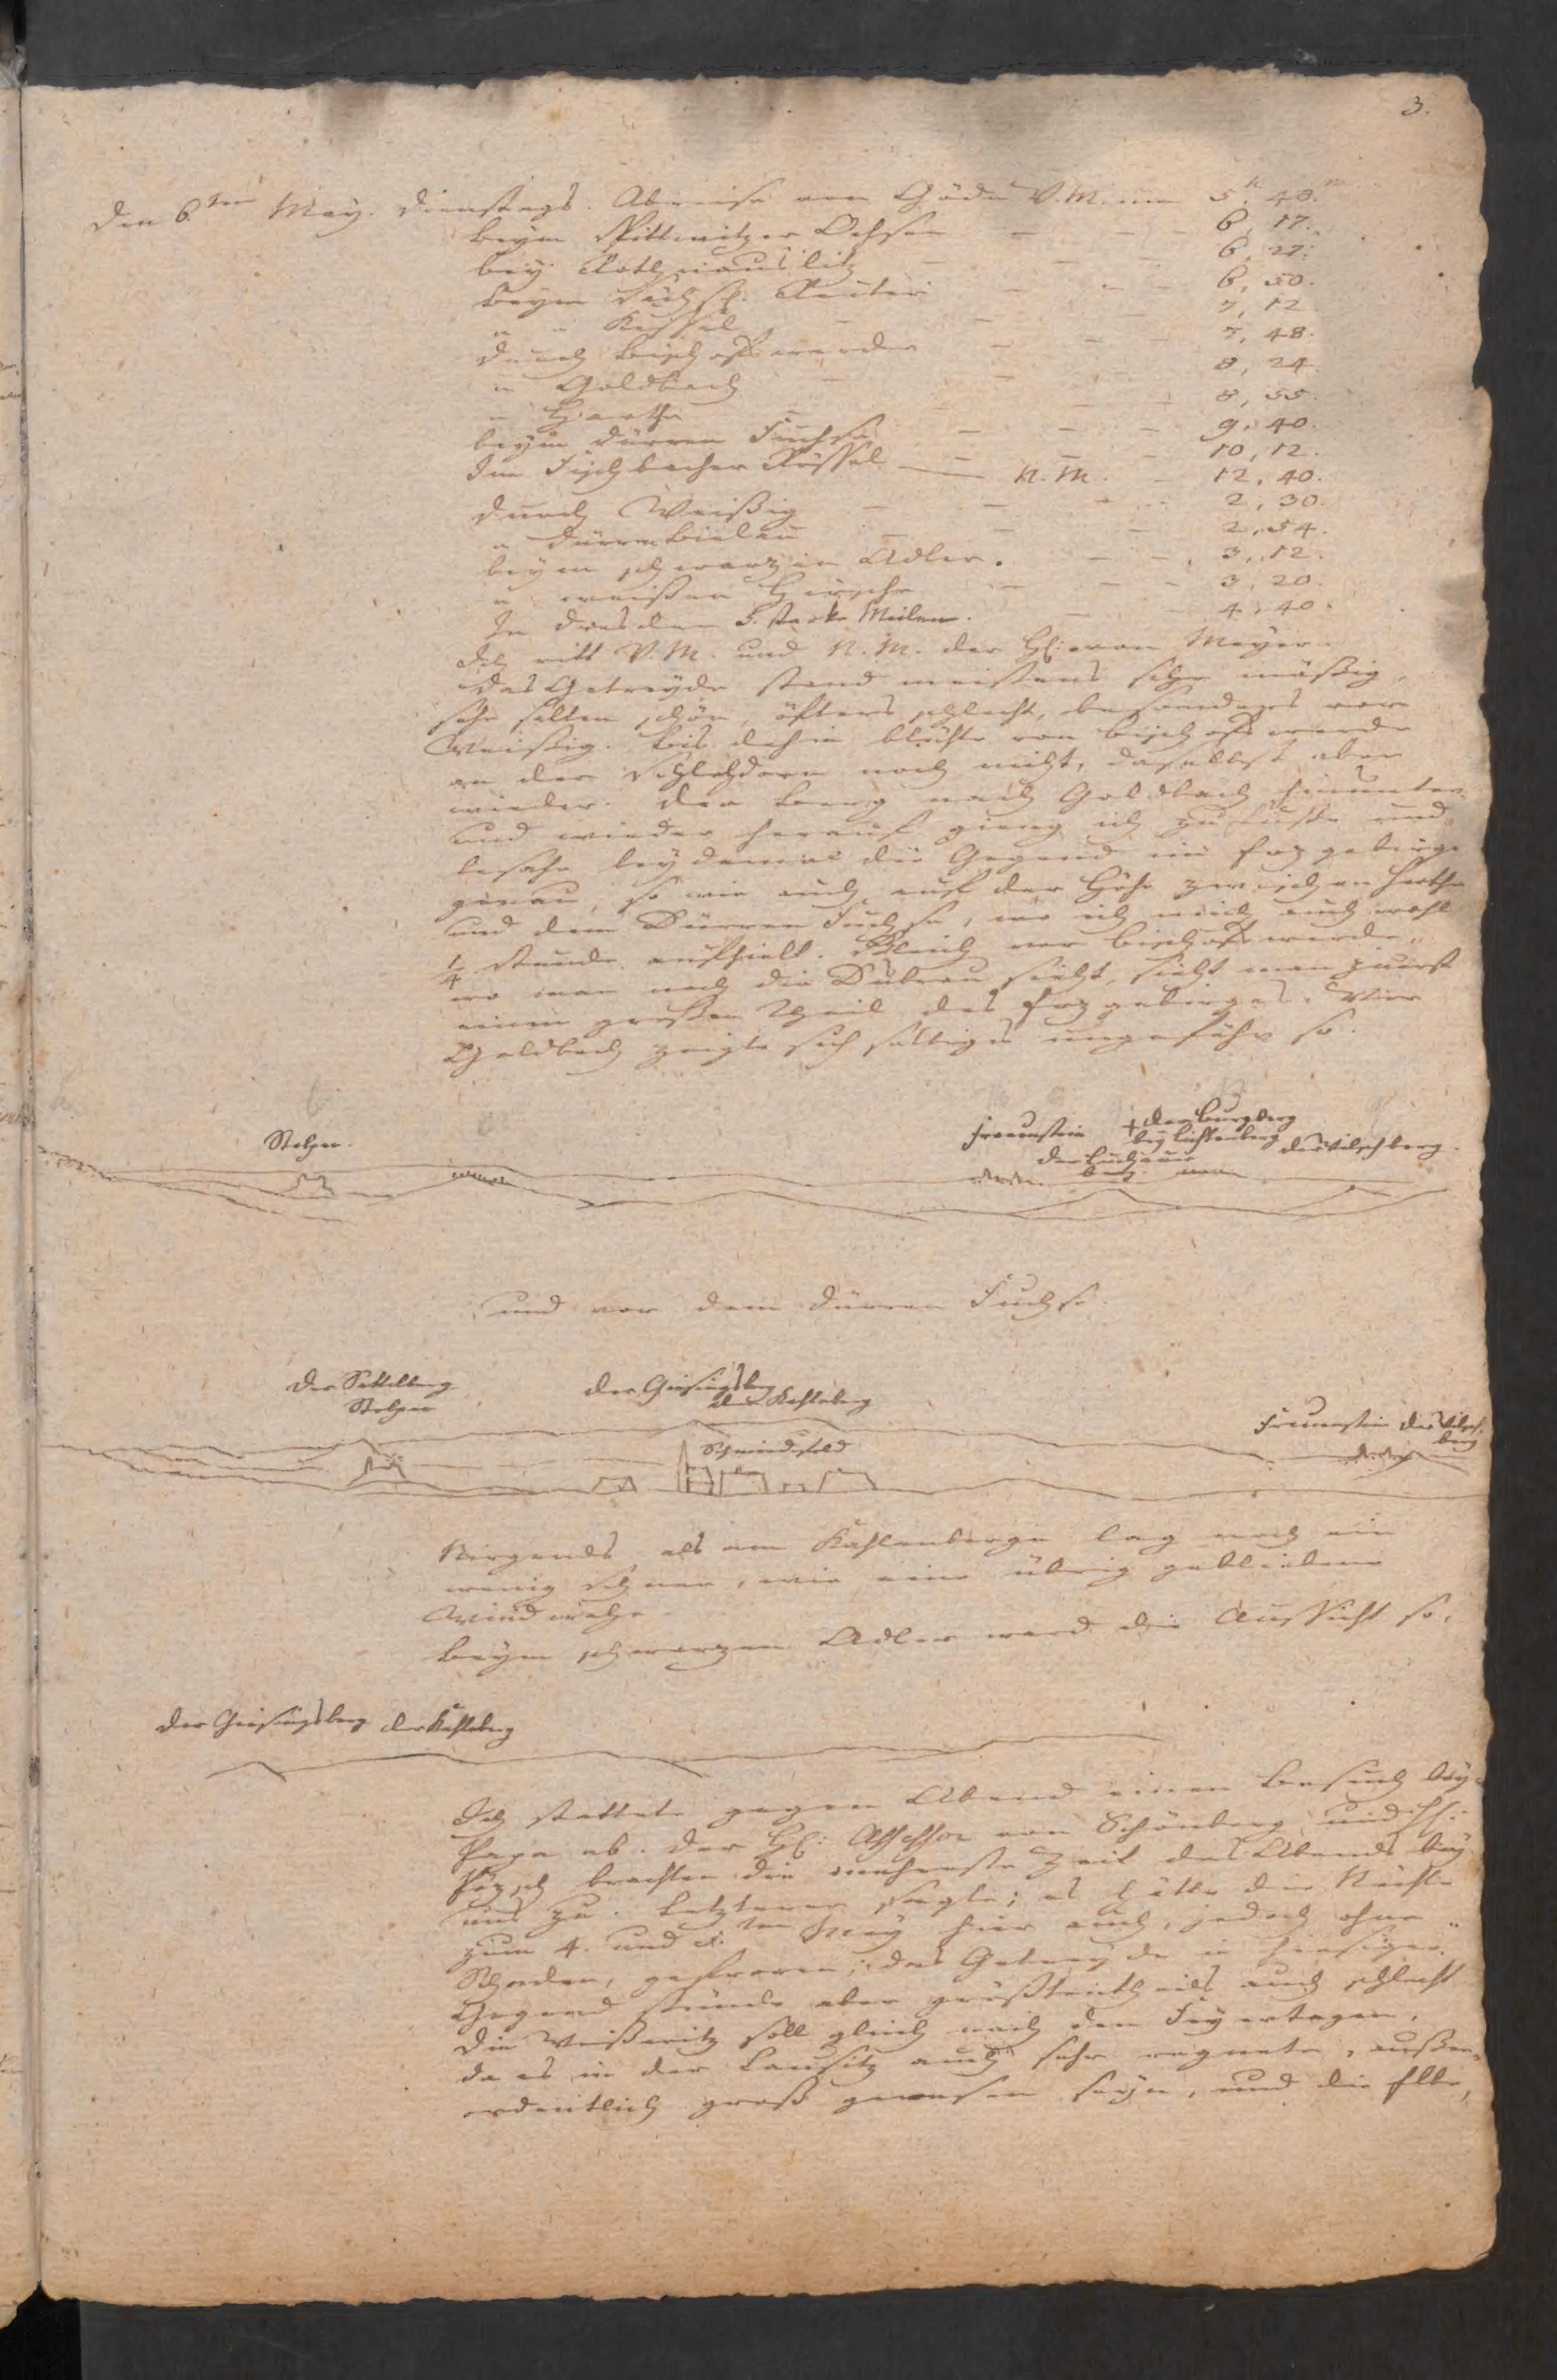 3.
Den 6.ten May. Dienstags. Abreise von Göda V.M. um 5.h 40.m
beym Pittwitzer Ochsen — — — 6, 17.
bey Rothnauslitz — — — 6, 27.
beym Sächs. Reuter — — — 6, 50.
" " Kessel — — 7, 12.
durch Bischofswerda — — — 7, 48.
" Goldbach — — — 8, 24.
" Hartha — — — 8, 55.
beym dürren Fuchse — — — 9, 40.
Im Fischbacher Rössel — — — 10, 12.
— N.M. — 12, 40.
durch Weißig — — — 2, 30.
" Dürrn Bielau — — — 2, 54.
beym schwarzen Adler. — — 3, 12.
" weißen Hirsche — — — 3, 20.
In Dresden 5. starke Meilen. — — 4, 40.
Ich ritt V.M. und N.M. der H. von Meyer.
Das Getreyde stand meistens sehr mäßig,
sehr selten schön, öfters schlecht, besonders vor
Weißig. Bis dahin blühte von Bischofswerda
an der Schlehdorn noch nicht, daselbst aber
wieder. Den Berg nach Goldbach hinunter
und wieder herauf gieng ich zu Fuße und
besahe beydemal die Gegend im Erzgebirge
genau, so wie auch auf der Höhe zwischen Hartha
und dem Dürren Fuchse, wo ich mich auch wohl
1/4 Stunde aufhielt. Gleich vor Bischofswerda,
wo man noch die Dubrau sieht, sieht man zuerst
einen großen Theil des Erzgebirges. Vor
Goldbach zeigte sich selbiges ungefähr so.
Stolpen.
Frauenstein
+ der Burgberg
bey Lichtenberg
der Luchauer
berg.
der Wilschberg.
und vor dem dürren Fuchse.
Der Sattelberg
Stolpen
der Geisingsberg
der Kahleberg
Schmiedefeld
Frauenstein
der Wilsch-
berg
Nirgends als am Kahlenberge lag noch ein
wenig Schnee, wie eine übrig gebliebene
Windwehe.
Beym schwarzen Adler ward die Aussicht so.
der Geisingsberg der Kahleberg
Ich stattete gegen Abend einen Besuch bey
Papa ab. Der H. Assessor von Schönberg und H.
Pözsch brachten die mehreste Zeit des Abends bey
uns zu. Letzterer sagte; es hätte die Nächte
zum 4. und 5.ten May hier auch, jedoch ohne
Schaden, gefroren; das Getreyde in hiesiger
Gegend stünde aber größtentheils auch schlecht.
Die Weißeritz soll gleich nach den Feyertagen,
da es in der Lausitz auch sehr regnete, außer-
ordentlich groß gewesen seyn, und die Elbe,